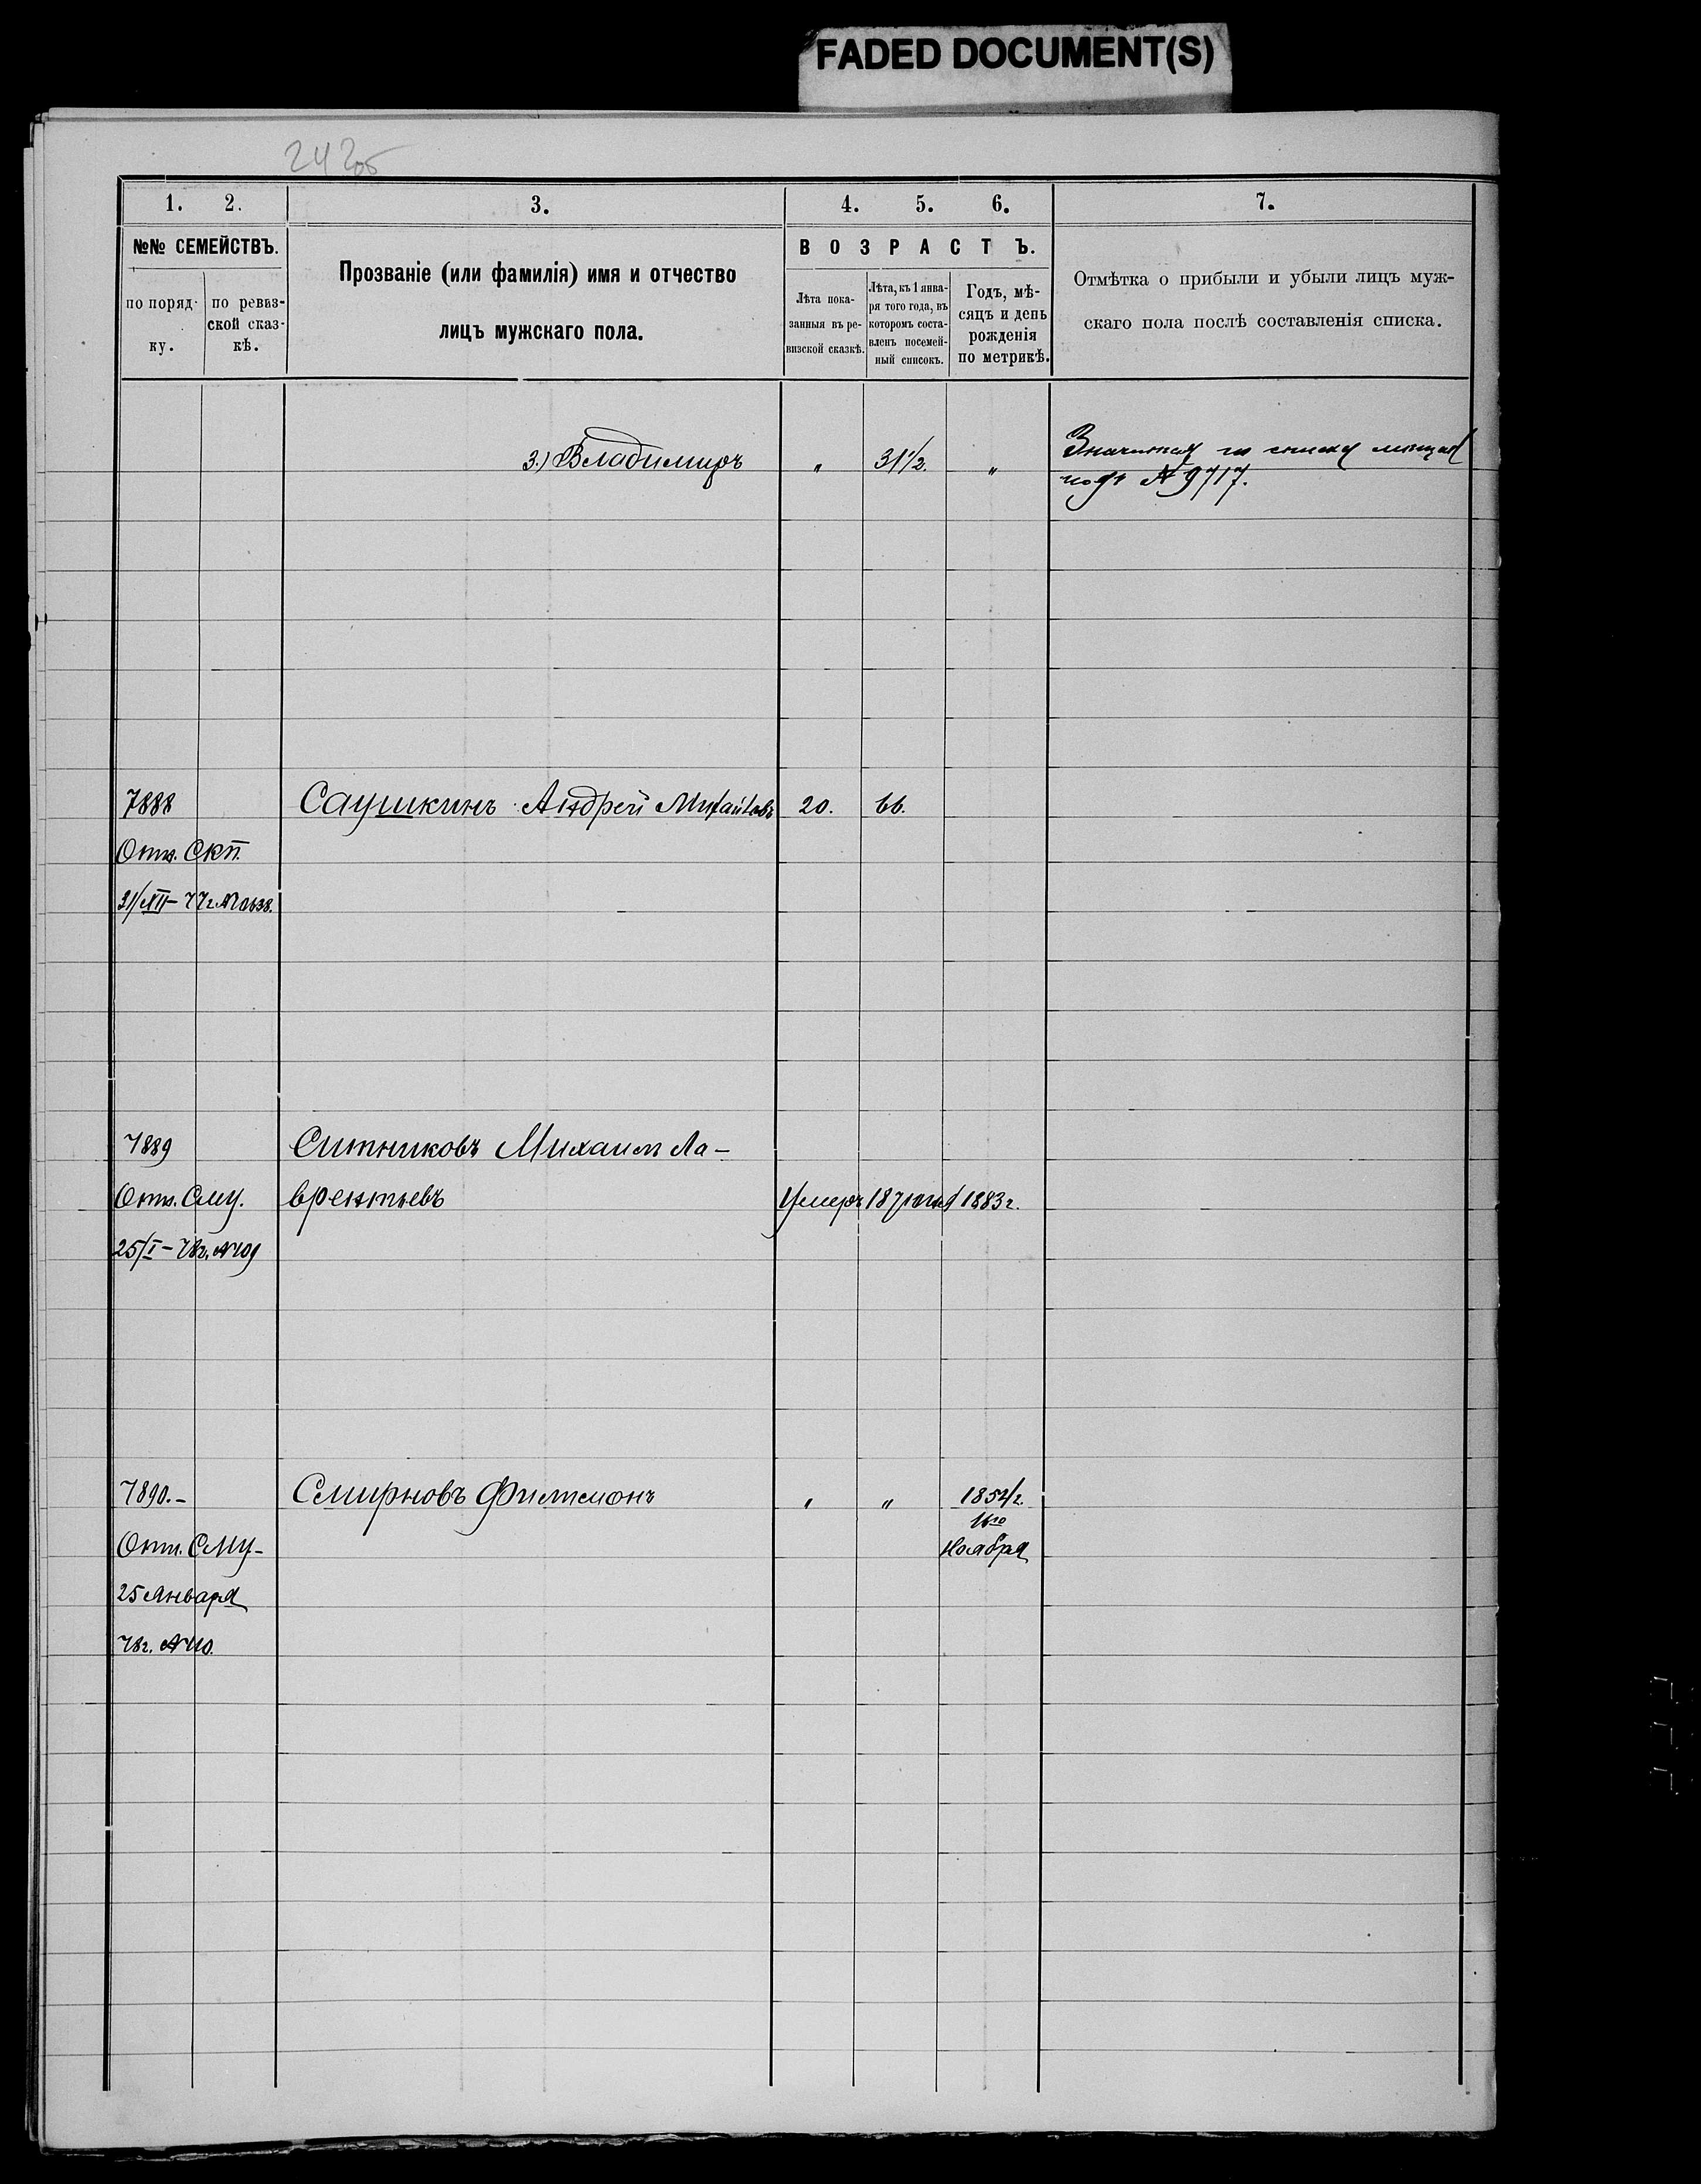 FADED DOCUMENT(S)
242об
1. 2. 3. 4. 5. 6. 7.
№№ СЕМЕЙСТВЪ.
по поряд-
ку.
по ревиз-
ской сказ-
кѣ.
Прозваніе (или фамилія) имя и отчество
лицъ мужскаго пола.
ВОЗРАСТЪ.
Лѣта пока-
занныя въ ре-
визской сказкѣ.
Лѣта, къ 1 янва-
ря того года, въ
которомъ соста-
вленъ посемей-
ный списокъ.
Годъ, мѣ-
сяцъ и день
рожденія
по метрикѣ.
Отмѣтка о прибыли и убыли лицъ муж-
скаго пола послѣ составленія списка.
3.) Владимиръ „ 31½. „
Значится по списку мѣщан
подъ № 9717.
7888 Саушкинъ Андрей Михайловъ 20. 66.
Отн. СКП.
31/XII – 77г. №
7889 Ситниковъ Михаилъ Ла-
Отн. СМУ. врентьевъ Умеръ 18 1883г.
25/I – 78г. №109
7890.– Смирновъ Филимонъ „ „ 1852/г.
16го
Отн. СМУ– Ноября
25 Января
78г. №110.